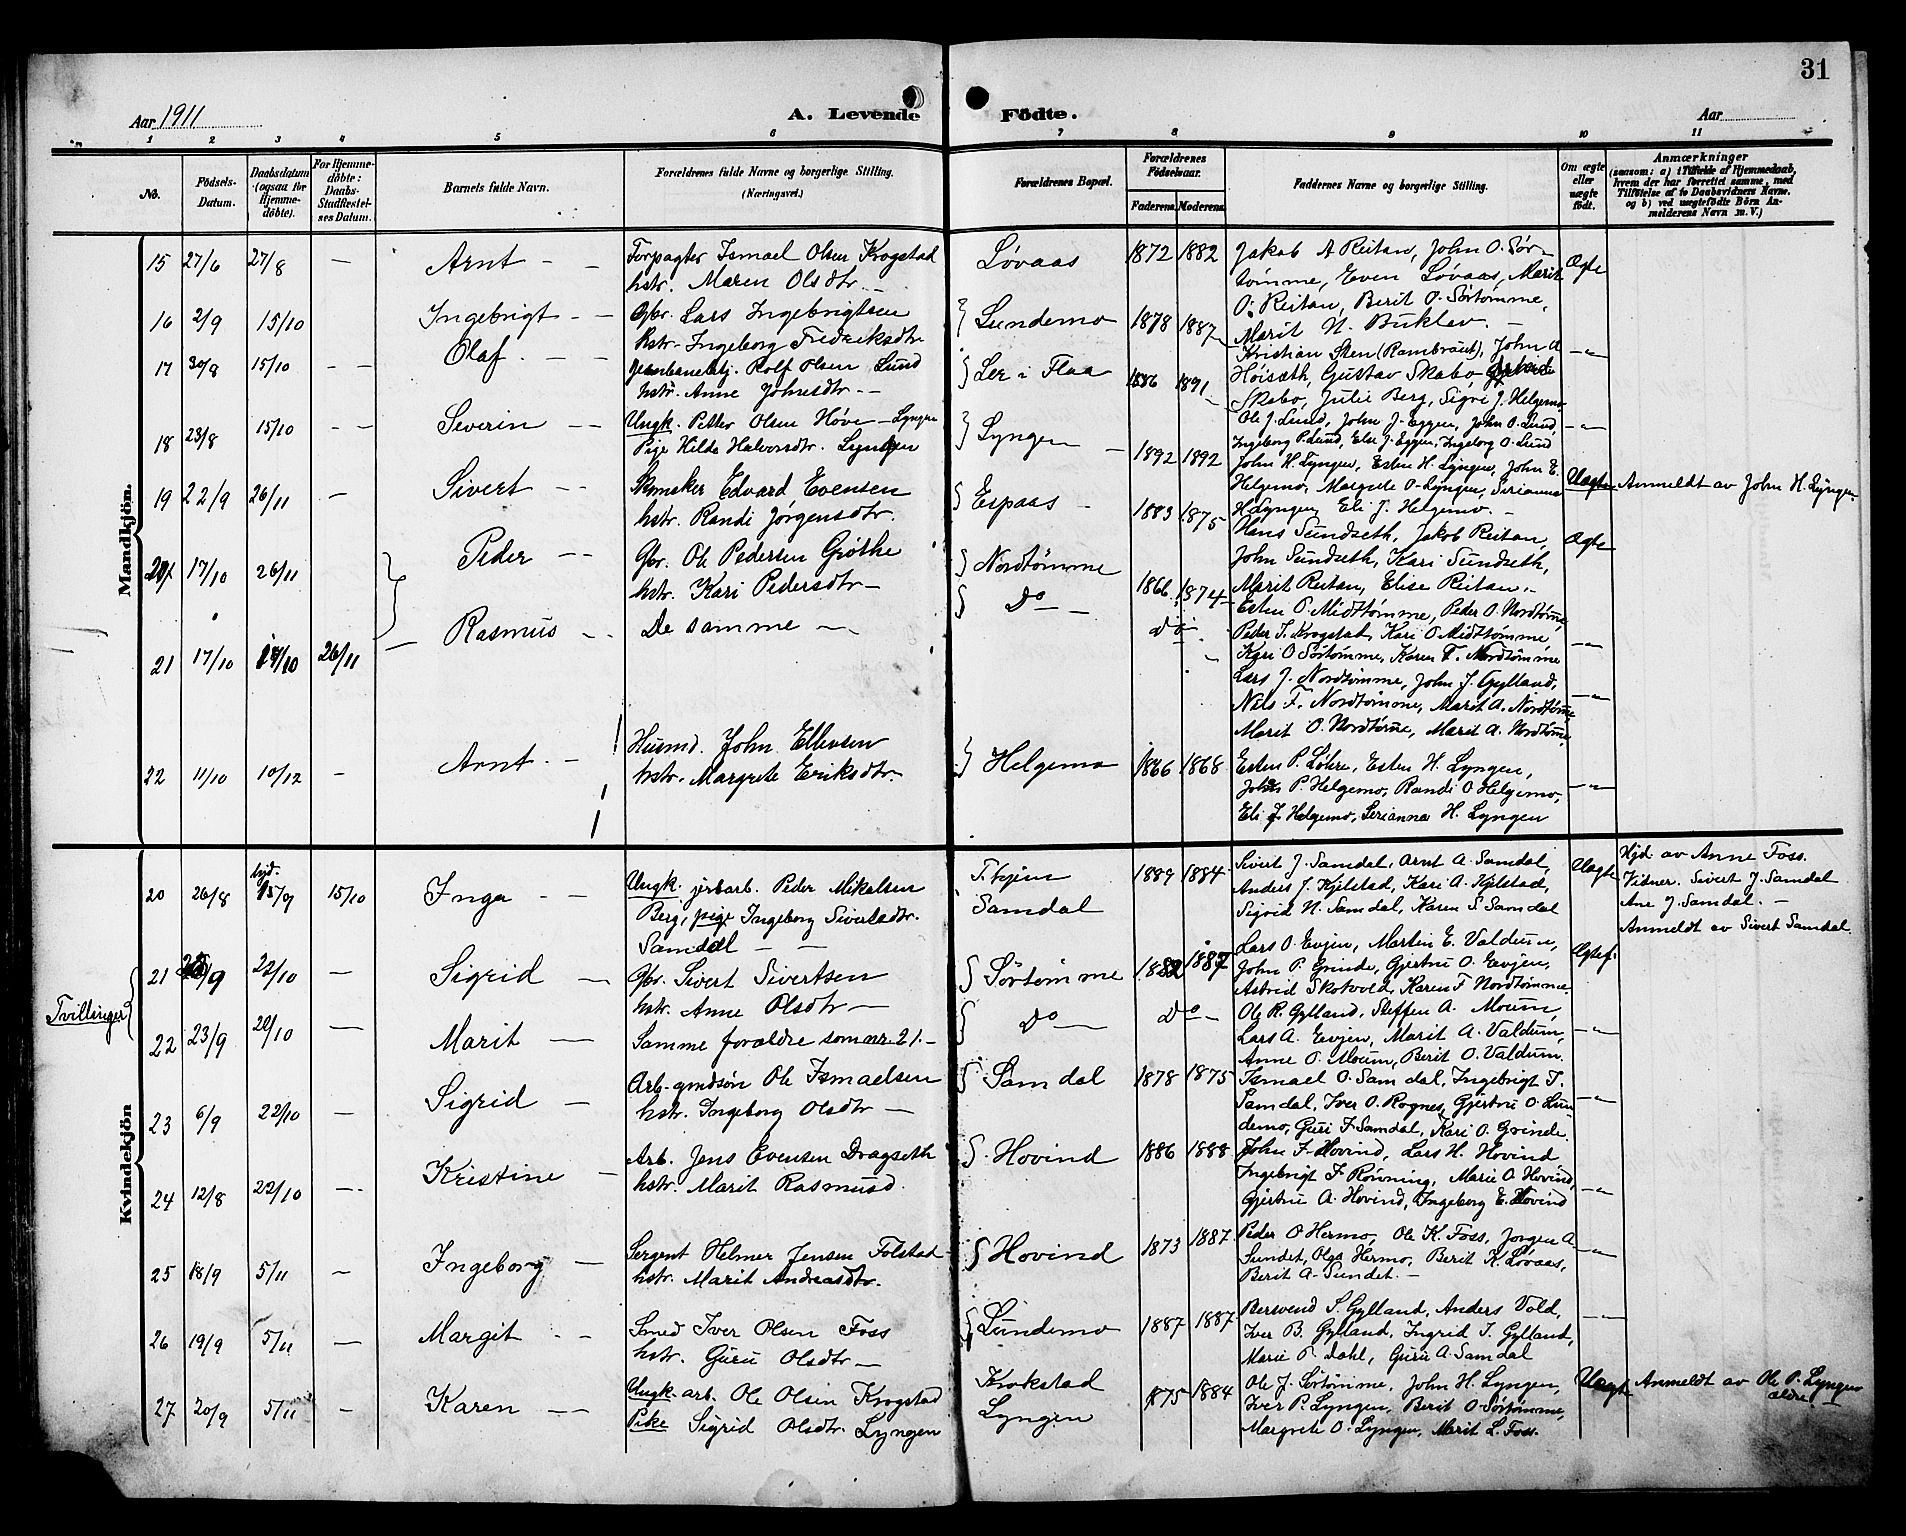 31
Aar 1911
A. Levende Födte.
Aar
1 2 3 4 5 6 7 8 9 10 11
No.
Födsels-Datum.
Daabsdatum (ogsaa for Hjemmedöbte).
For Hjemmedöbte: Daabs-Stadfæstelses Datum.
Barnets fulde Navn.
Forældrenes fulde Navne og borgerlige Stilling. (Næringsvei.)
Forældrenes Bopæl.
Forældrenes Födselsaar.
Faderens. Moderens.
Faddernes Navne og borgerlige Stilling.
Om ægte eller uægte født.
Anmærkninger
(saasom: a) i Tilfælde af Hjemmedaab, hvem der har forrettet samme, med Tilföielse af to Daabsvidners Navne, og b) ved uægtefödte Börn Anmelderens Navn m. V.)
Mandkjön.
15 27/6 27/8 — Arnt - -
Forpagter Ismael Olsen Krogstad
hstr. Maren Olsdtr. -
Løvaas 1872 1882
Jakob A Reitan, John O. Sør-
tømme, Even Løvaas, Marit
O. Reitan, Berit O. Sørtømme,
Marit N. Buklev. -
Ægte
16 2/9 15/10 Ingebrigt - -
Gbr. Lars Ingebrigtsen
hstr. Ingeborg Fredriksdtr
Lundemo 1878 1887
Kristian Sten (Rambraut), John A
Høiseth, Gustav Skabo
Skabo, Julie Berg, Sigri J. Helgemo
— " —
17 30/8 15/10 - - Olaf - -
Jernbanearbj. Rolf Olsen Lund
hstr. Anne Johnsdtr. -
Ler i Flaa 1886 1891
Ole J. Lund, John J. Eggen, John O. Lund,
Ingeborg P. Lund, Else J. Eggen, Ingeborg O. Lund
— " —
18 23/8 15/10 - - Severin - -
Ungk. Petter Olsen Høve - Lyngen
Pige Hilda Halvorsdtr. Lyngen
Lyngen - 1892 1892
John H. Lyngen, Esten H. Lyngen, John E.
Helgemo, Margrete O. Lyngen, Serianna
H. Lyngen, Eli J. Helgemo. -
Uægte Anmeldt av John H. Lyngen
19 22/9 26/11 - Sivert - -
Skomaker Edvard Evensen
hstr. Randi Jørgensdtr.
Espaas - 1883 1875
Hans Sundseth, Jakob Reitan,
John Sundseth, Kari Sundseth,
Marit Reitan, Elise Reitan. -
Ægte
20 17/10 26/11 Peder - -
Gbr. Ole Pedersen Grøthe
hstr. Kari Pedersdtr -
Nordtømme 1866 1874
Esten P. Midttømme, Peder O. Nordtømme,
Peder I. Krogstad, Kari O Midttømme
Kari O Sørtømme, Karen F. Nordtømme
— " —
21 17/10 17/10 26/11 - Rasmus - -
De samme -
Do - do
Lars J. Nordtømme, John J. Gylland,
Nils F. Nordtømme, Marit A. Nordtømme
Marit O. Nordtømme, Marit A. Nordtømme
— " —
22 11/10 10/12 - Arnt. -
Husmd. John Ellevsen
hstr. Margrete Eriksdtr.
Helgemo 1866 1868
Esten P. Løhre, Esten H. Lyngen,
John P. Helgemo, Randi O Helgemo,
Eli J Helgemo, Serianna H. Lyngen
— " —
Kvindekjön
20 26/8 hjd. 15/9 15/10 Inga - -
Ungk. jrbarb. Peder Mikalsen
Berg, pige Ingeborg Sivertsdtr.
Samdal - -
Samdal 1889 1884
Sivert J. Samdal, Arnt A. Samdal,
Anders J. Kjelstad, Kari A. Kjelstad,
Sigrid N. Samdal, Karen S Samdal
Uægte
Hjd. av Anne Foss.
Vidner. Sivert J. Samdal
Ane J. Samdal. -
Anmeldt av Sivert Samdal.
Tvillinger
21 23/9 22/10 - Sigrid -
Gbr. Sivert Sivertsen
hstr. Anne Olsdtr -
Sørtømme 1882 1887
Lars O. Evjen, Martin E. Valdum,
John P. Grinde, Gjertru O. Evjen,
Astrid Skotvold, Karen F Nordtømme.
Ægtef.
22 23/9 22/10 - Marit -
Samme forældre som nr. 21. -
Do - Do -
Ole R. Gylland, Steffen A. Moum,
Lars A. Evjen, Marit A. Valdum,
Anne O. Moum, Berit O. Valdum.
— " —
23 6/9 22/10 - Sigrid -
Arb. gmdsøn Ole Ismaelsen
hstr. Ingeborg Olsdtr -
Samdal 1878 1875
Ismael O. Samdal, Ingebrigt I.
Samdal, Iver O. Rognes, Gjertru O. Lun
demo, Guri I. Samdal, Kari O. Grinde.
— " —
24 12/8 22/10 - Kristine -
Arb. Jens Evensen Dragseth
hstr. Marit Rasmusd.
Hovind 1886 1888
John F. Hovind, Lars H. Hovind
Ingebrigt F. Rønning, Marie O. Hovind,
Gjertru A. Hovind, Ingeborg E. Hovind
— " —
25 18/9 5/11 - Ingeborg -
Sergent Helmer Jensen Folstad
hstr. Marit Andreasdtr.
Hovind 1873 1887
Peder O Hermo, Ole K. Foss, Jørgen A.
Sundet, Olga Hermo, Berit K. Løvaas,
Berit A. Sundet. -
— " —
26 19/9 5/11 - Margit - -
Smed Iver Olsen Foss
hstr. Guru Olsdtr -
Lundemo 1887 1887
Bersvend S. Gylland, Anders Vold,
Iver B. Gylland, Ingrid I. Gylland,
Marie P. Dahl, Guru A. Samdal
— " —
27 20/9 5/11 - Karen - -
Ungk. arb. Ole Olsen Krogstad
Pike Sigrid Olsdtr. Lyngen
Krokstad
Lyngen
1875 1884
Ole J. Sørtømme, John H. Lyngen,
Iver P. Lyngen, Berit O. Sørtømme,
Margrete O. Lyngen, Marit L. Foss.
Uægte Anmeldt av Ole P. Lyngen
ældre